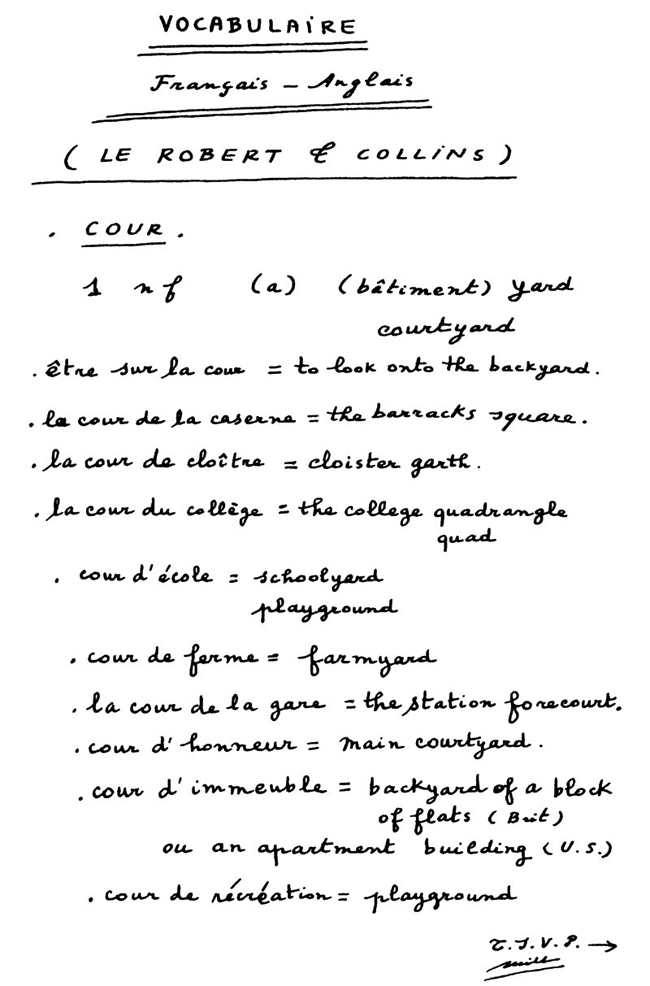 VOCABULAIRE
Français - Anglais
( LE ROBERT & COLLINS )
. COUR .
1 nf (a) (bâtiment) yard
courtyard
. être sur la cour = to look onto the backyard.
. la cour de la caserne = the barracks square.
. la cour de cloître = cloister garth.
. la cour du collège = the college quadrangle
quad
. cour d'école = schoolyard
playground
. cour de ferme = farmyard
. la cour de la gare = the station forecourt.
. cour d'honneur = main courtyard.
. cour d'immeuble = backyard of a block
of flats (Brit)
ou an apartment building (U.S.)
. cour de récréation = playground
T.S.V.P. →